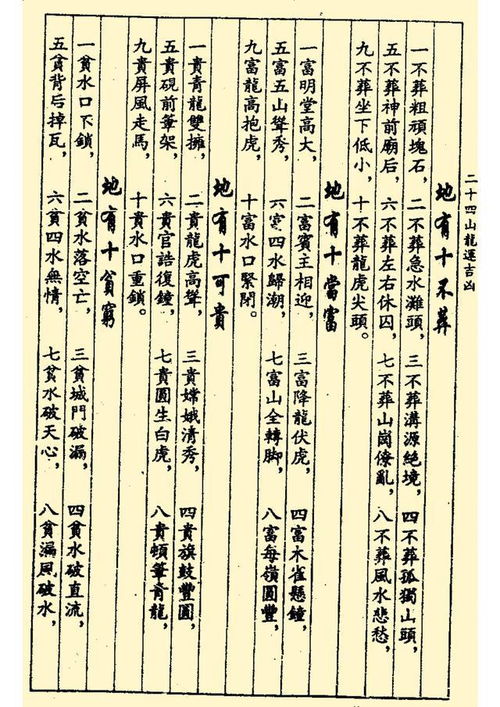 二十四山龍運吉凶
地有十不葬
一不葬粗頑塊石，二不葬急水灘頭，三不葬溝源絕境，四不葬孤獨山頭，
五不葬神前廟后，六不葬左右休囚，七不葬山崗僚亂，八不葬風水悲愁，
九不葬坐下低小，十不葬龍虎尖頭。
地有十當富
一富明堂高大，二富賓主相迎，三富降龍伏虎，四富木雀懸鐘，
五富五山聳秀，六富四水歸潮，七富山全轉脚，八富每嶺圓豐，
九富龍高抱虎，十富水口緊閉。
地有十可貴
一貴青龍雙擁，二貴龍虎高聳，三貴嫦娥清秀，四貴旗鼓豐圓，
五貴硯前筆架，六貴官誥復鐘，七貴圓生白虎，八貴頓筆青龍，
九貴屏風走馬，十貴水口重鎖。
地有十貧窮
一貧水口下鎖，二貧水落空亡，三貧城門破漏，四貧水破直流，
五貧背后掉瓦，六貧四水無情，七貧水破天心，八貧漏風破水，